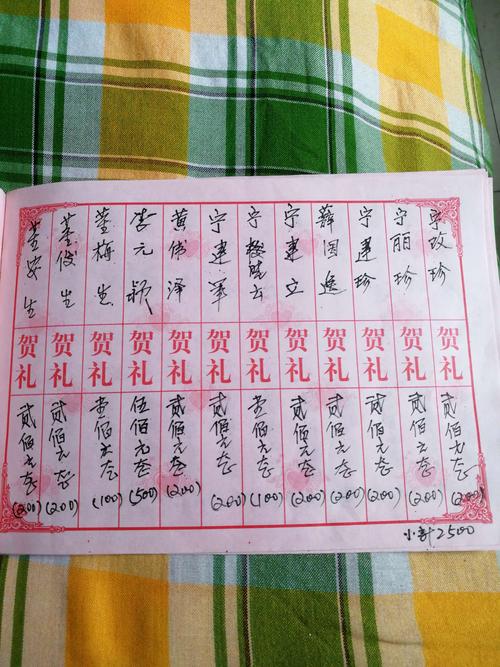 宁玫珍 贺礼 贰佰元整 (200)
宁丽珍 贺礼 贰佰元整 (200)
宁建珍 贺礼 贰佰元整 (200)
薛国逸 贺礼 贰佰元整 (200)
宁建立 贺礼 贰佰元整 (200)
宁 云 贺礼 壹佰元整 (100)
宁建军 贺礼 贰佰元整 (200)
黄伟泽 贺礼 贰佰元整 (200)
李元颖 贺礼 伍佰元整 (500)
董梅生 贺礼 壹佰元整 (100)
董俊生 贺礼 贰佰元整 (200)
董安生 贺礼 贰佰元整 (200)
小计2500